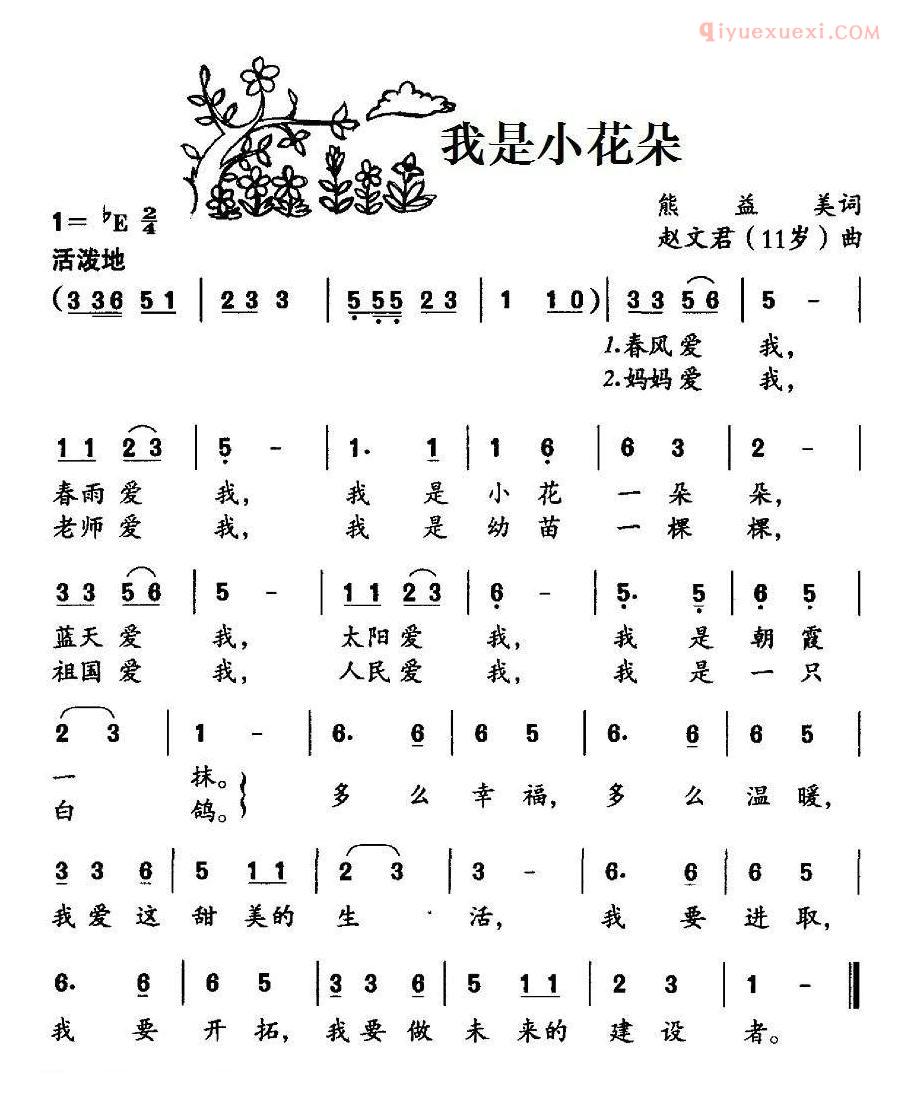 qiyuexuexi.com
我是小花朵
熊 益 美词
1= ♭E 2/4
赵文君（11岁）曲
活泼地
(3 36 5 1 | 2 3 3 | 5 55 2 3 | 1 1 0) | 3 3 5 6 | 5 - |
1.春风爱 我，
2.妈妈爱 我，
1 1 2 3 | 5 - | 1. 1 | 1 6 | 6 3 | 2 - |
春雨爱 我， 我 是 小 花 一 朵 朵，
老师爱 我， 我 是 幼 苗 一 棵 棵，
3 3 5 6 | 5 - | 1 1 2 3 | 6 - | 5. 5 | 6 5 |
蓝天爱 我， 太阳爱 我， 我 是 朝 霞
祖国爱 我， 人民爱 我， 我 是 一 只
2 3 | 1 - | 6. 6 | 6 5 | 6. 6 | 6 5 |
一 抹。 多 么 幸 福， 多 么 温 暖，
白 鸽。
3 3 6 | 5 1 1 | 2 3 | 3 - | 6. 6 | 6 5 |
我 爱 这 甜 美的 生 活， 我 要 进 取，
6. 6 | 6 5 | 3 3 6 | 5 1 1 | 2 3 | 1 - ‖
我 要 开 拓， 我 要 做 未 来的 建 设 者。